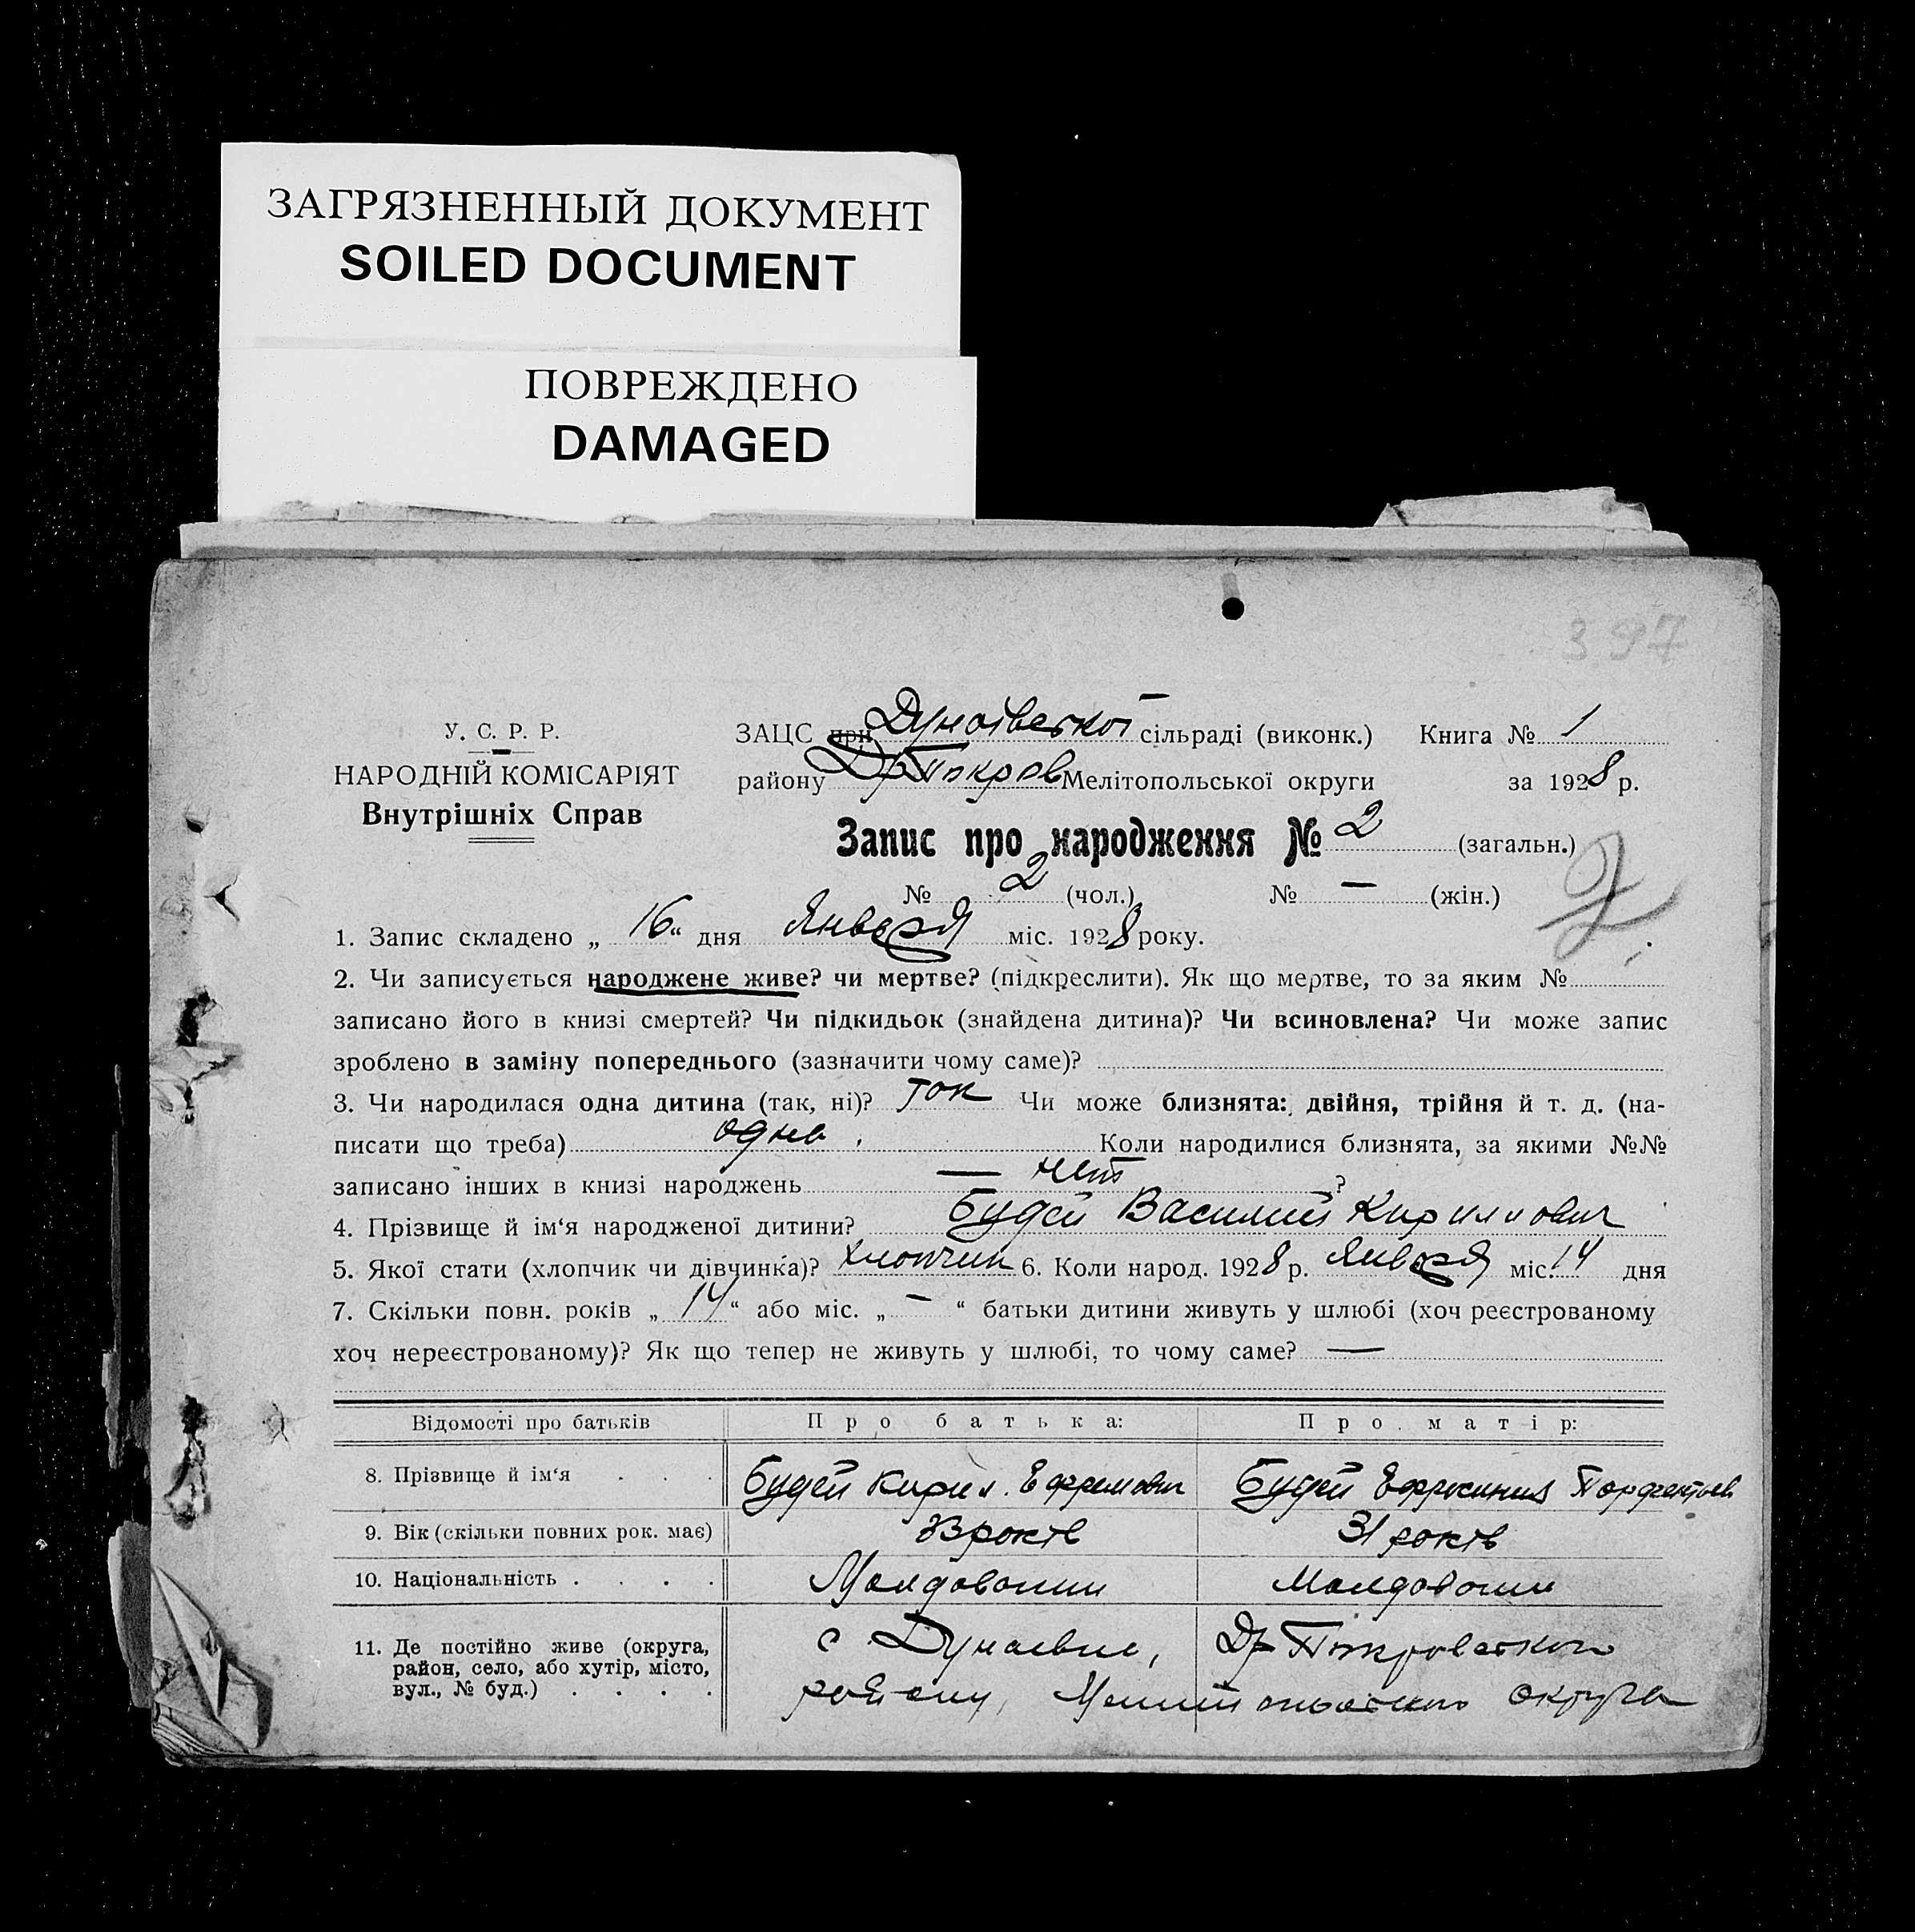 ЗАГРЯЗНЕННЫЙ ДОКУМЕНТ
SOILED DOCUMENT
ПОВРЕЖДЕНО
DAMAGED
397
У. С. Р. Р.
НАРОДНІЙ КОМІСАРІЯТ
Внутрішніх Справ
ЗАЦС при Дунаївської сільраді (виконк.) Книга № 1
району Др Покров Мелітопольської округи за 1928 р.
Запис про народження № 2 (загальн.)
2
№ 2 (чол.) № — (жін.)
1. Запис складено „ 16 “ дня Января міс. 1928 року.
2. Чи записується народжене живе? чи мертве? (підкреслити). Як що мертве, то за яким №
записано його в книзі смертей? Чи підкидьок (знайдена дитина)? Чи всиновлена? Чи може запис
зроблено в заміну попереднього (зазначити чому саме)?
3. Чи народилася одна дитина (так, ні)? так Чи може близнята: двійня, трійня й т. д. (на-
писати що треба) одна. Коли народилися близнята, за якими №№
записано інших в книзі народжень — нет ?
4. Прізвище й ім‘я народженої дитини? Будей Василий Кирилович
5. Якої стати (хлопчик чи дівчинка)? хлопчик 6. Коли народ. 1928 р. Января міс. 14 дня
7. Скільки повн. років „ 14 “ або міс. „ — “ батьки дитини живуть у шлюбі (хоч реєстрованому
хоч нереєстрованому)? Як що тепер не живуть у шлюбі, то чому саме? —
Відомості про батьків Про батька: Про матір:
8. Прізвище й ім‘я . . . Будей Кирил Ефремович Будей Ефросиния
9. Вік (скільки повних рок. має) 33 років 31 років
10. Національність . . . . Молдовани Молдовани
11. Де постійно живе (округа, район, село, або хутір, місто, вул., № буд.) . . . .
с Дунаевке, Др Покровского
району, Мелитопольского округа